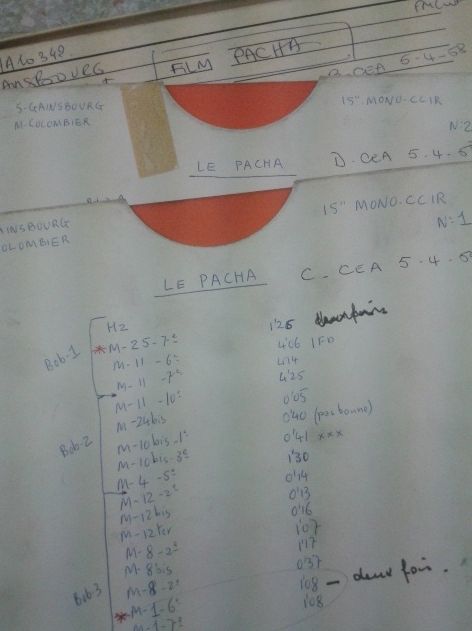 FILM PACHA
CEA 5-4-68
S-GAINSBOURG
M-COLOMBIER
15" MONO-CCIR
N:2
LE PACHA
D. CEA 5-4-6
AINSBOURG
OLOMBIER
15" MONO-CCIR
N:1
LE PACHA
C - CEA 5-4-68
Bob-1
Hz 1'26
*M-25-7e 4'06 1FD
M-11-6e 4'14
M-11-7e 4'25
M-11-10e 0'05
Bob-2
M-24bis 0'40 (pas bonne)
M-10bis-1e 0'41 xxx
M-10bis-3e 1'30
M-4-5e 0'14
M-12-2e 0'13
M-12bis 0'16
M-12ter 1'07
M-8-2e 1'17
M-8bis 0'37
Bob-3
M-8-2e 1'08 - deux fois.
*M-1-6e 1'08
M-1-7e